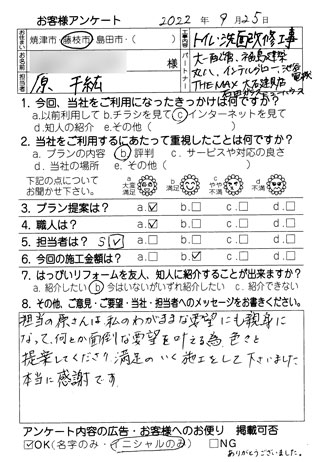 お客様アンケート 2022年9月25日
お住まい 焼津市・藤枝市・島田市・( )
お名前 様
担当者 原 千紘
工事内容 トイレ・洗面改修工事
パートナー 大一配管、福島建築
インテリアグロー、池谷電機
THE MAX 大石建設
1. 今回、当社をご利用になったきっかけは何ですか?
a.以前利用して b.チラシを見て c.インターネットを見て
d.知人の紹介 e.その他( )
2. 当社をご利用するにあたって重視したことは何ですか?
a. プランの内容 b.評判 c. サービスや対応の良さ
d. 当社の場所 e. その他( )
下記の点について
お聞かせ下さい。
a 大変満足 b 満足 c やや不満 d 不満
3. プラン提案は? a.☑ b.□ c.□ d.□
4. 職人は? a.☑ b.□ c.□ d.□
5. 担当者は? S☑ a.□ b.□ c.□ d.□
6. 今回の施工金額は? a.□ b.☑ c.□ d.□
7. はっぴいリフォームを友人、知人に紹介することが出来ますか?
a. 紹介したい b.今はいないがいずれ紹介したい c. 紹介できない
8. その他、ご意見・ご要望・当社・担当者へのメッセージをお書きください。
担当の原さんは私のわがままな要望にも親身に
なって、何とか面倒な要望を叶える為色々と
提案してくださり満足のいく施工をして下さいました
本当に感謝です。
アンケート内容の広告・お客様へのお便り 掲載可否
☑OK(名字のみ・イニシャルのみ) □NG
ありがとうございました。